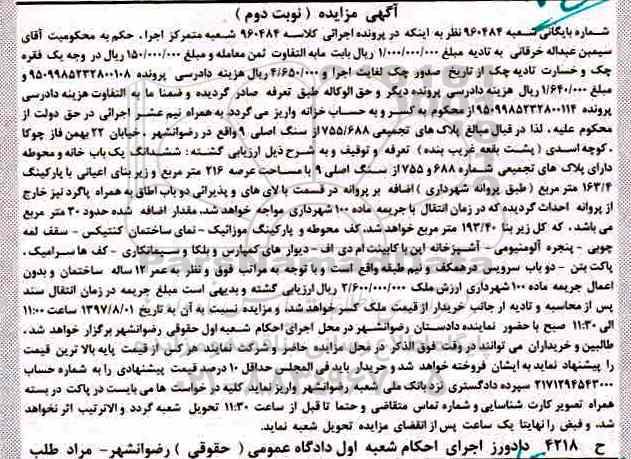 آگهی مزایده ( نوبت دوم )
شماره بایگانی شعبه ۹۶۰۴۸۴ نظر به اینکه در پرونده اجرائی کلاسه ۹۶۰۴۸۴ شعبه متمرکز اجرا . حکم به محکومیت آقای
سیمین عبداله خرقانی به تادیه مبلغ ۱/۰۰۰/۰۰۰/۰۰۰ ریال بابت مابه التفاوت ثمن معامله و مبلغ ۱۵۰/۰۰۰/۰۰۰ ریال در وجه یک فقره
چک و خسارت تادیه چک از تاریخ صدور چک لغایت اجرا و ۴/۶۵۰/۰۰۰ ریال هزینه دادرسی پرونده ۹۵۰۹۹۸۵۲۳۲۸۰۰۱۰۸ و
مبلغ ۱/۶۴۰/۰۰۰ ریال هزینه دادرسی پرونده دیگر و حق الوکاله طبق تعرفه صادر گردیده و ضمنا ما به التفاوت هزینه دادرسی
پرونده ۹۵۰۹۹۸۵۲۳۲۸۰۰۱۱۴ از محکوم به کسر و به حساب خزانه واریز می گردد به همراه نیم عشر اجرائی در حق دولت از
محکوم علیه . لذا در قبال مبالغ پلاک های تجمیعی ۷۵۵/۶۸۸ از سنگ اصلی ۹ واقع در رضوانشهر . خیابان ۲۲ بهمن فاز چوکا
. کوچه اسدی ( پشت بقعه غریب بنده ) تعرفه و توقیف و به شرح ذیل ارزیابی گشته : ششدانگ یک باب خانه و محوطه
دارای پلاک های تجمیعی شماره ۶۸۸ و ۷۵۵ از سنگ اصلی ۹ با مساحت عرصه ۲۱۶ متر مربع و زیر بنای اعیانی با پارکینگ
۱۶۳/۴ متر مربع (طبق پروانه شهرداری ) اضافه بر پروانه در قسمت بالای های و پذیرائی دو باب اطاق به همراه پاگرد نیز خارج
از پروانه احداث گردیده که در زمان انتقال با جریمه ماده ۱۰۰ شهرداری مواجه خواهد شد. مقدار اضافه شده حدود ۳۰ متر مربع
می باشد . که کل زیر بنا ۱۹۳/۴۰ متر مربع خواهد شد. کف محوطه و پارکینگ موزائیک - نمای ساختمان کنتیکس - سقف لمه
چوبی - پنجره آلومنیومی - آشپزخانه اپن با کابینت ام دی اف - دیوار های کمپارس و بلکا و سیمانکاری - کف ها سرامیک .
پاکت بتن - دو باب سرویس در همکف و نیم طبقه واقع است و با توجه به مراتب فوق و نظر به عمر ۱۲ ساله ساختمان و بدون
اعمال جریمه ماده ۱۰۰ شهرداری ارزش ملک ۲/۶۰۰/۰۰۰/۰۰۰ ریال ارزیابی گشته و بدیهی است مبلغ جریمه در زمان انتقال سند
پس از محاسبه و تادیه از جانب خریدار از قیمت ملک کسر خواهد شد، و مزایده نسبت به آن به تاریخ ۱۳۹۷/۸/۰۱ ساعت ۱۱:۰۰
الی ۱۱:۳۰ صبح با حضور نماینده دادستان رضوانشهر در محل اجرای احکام شعبه اول حقوقی رضوانشهر برگزار خواهد شد .
طالبین و خریداران می توانند در وقت فوق الذکر در محل مزایده حاضر و شرکت نمایند هر کس از قیمت پایه بالا ترین قیمت
را پیشنهاد نماید به ایشان فروخته خواهد شد و خریدار باید فی المجلس حداقل ۱۰ درصد قیمت پیشنهادی را به شماره حساب
۲۱۷۱۲۹۴۵۴۳۰۰۰ سپرده دادگستری نزد بانک ملی شعبه رضوانشهر واریز نماید. کلیه در خواست ها می بایست در پاکت در بسته
همراه تصویر کارت شناسایی و شماره تماس متقاضی و حتما تا قبل از ساعت ۱۱:۳۰ تحویل شعبه گردد و الا ترتیب اثر نخواهد
شد. و فیش را نهایتا یک ساعت پس از انقضای مزایده تحویل شعبه نماید.
ح ۴۲۱۸ دادورز اجرای احکام شعبه اول دادگاه عمومی ( حقوقی ) رضوانشهر - مراد طلب